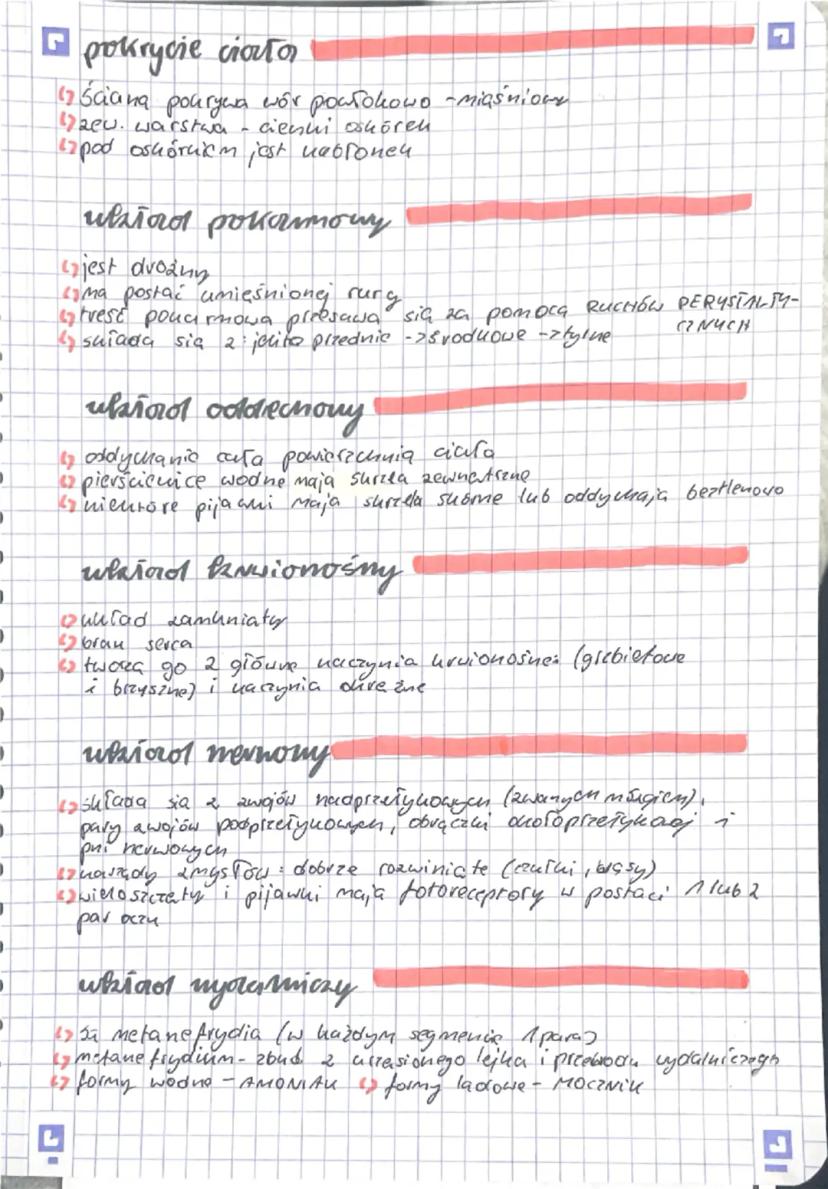 pokrycie ciała
ścianą pokrywa wór powłokowo-mięśniowy
zew. warstwa - cienki oskórek
pod oskórkiem jest nabłonek
układ pokarmowy
jest drożny
ma postać umięśnionej rury
treść pokarmowa przesuwa się za pomocą RUCHÓW PERYSTALTY-
CZNYCH
składa się z: jelito przednie -> środkowe -> tylne
układ oddechowy
oddychanie całą powierzchnią ciała
pierścienice wodne mają skrzela zewnętrzne
niektóre pijawki mają skrzela lub oddychają beztlenowo
układ krwionośny
układ zamknięty
brak serca
tworzą go 2 główne naczynia krwionośne: (grzbietowe
i brzuszne) i naczynia okrężne
układ nerwowy
składa się z zwojów nadprzełykowych (zwanych mózgiem),
pary zwojów podprzełykowych, obrączki okołoprzełykowej i
pni nerwowych
narządy zmysłów: dobrze rozwinięte (czułki, wąsy)
wieloszczety i pijawki mają fotoreceptory w postaci 1 lub 2
par oczu
układ wydalniczy
są metanefrydia (w każdym segmencie 1 para)
metanefrydium - zbud. z urzęsionego lejka i przewodu wydalniczego
formy wodne - AMONIAK formy lądowe - MOCZNIK